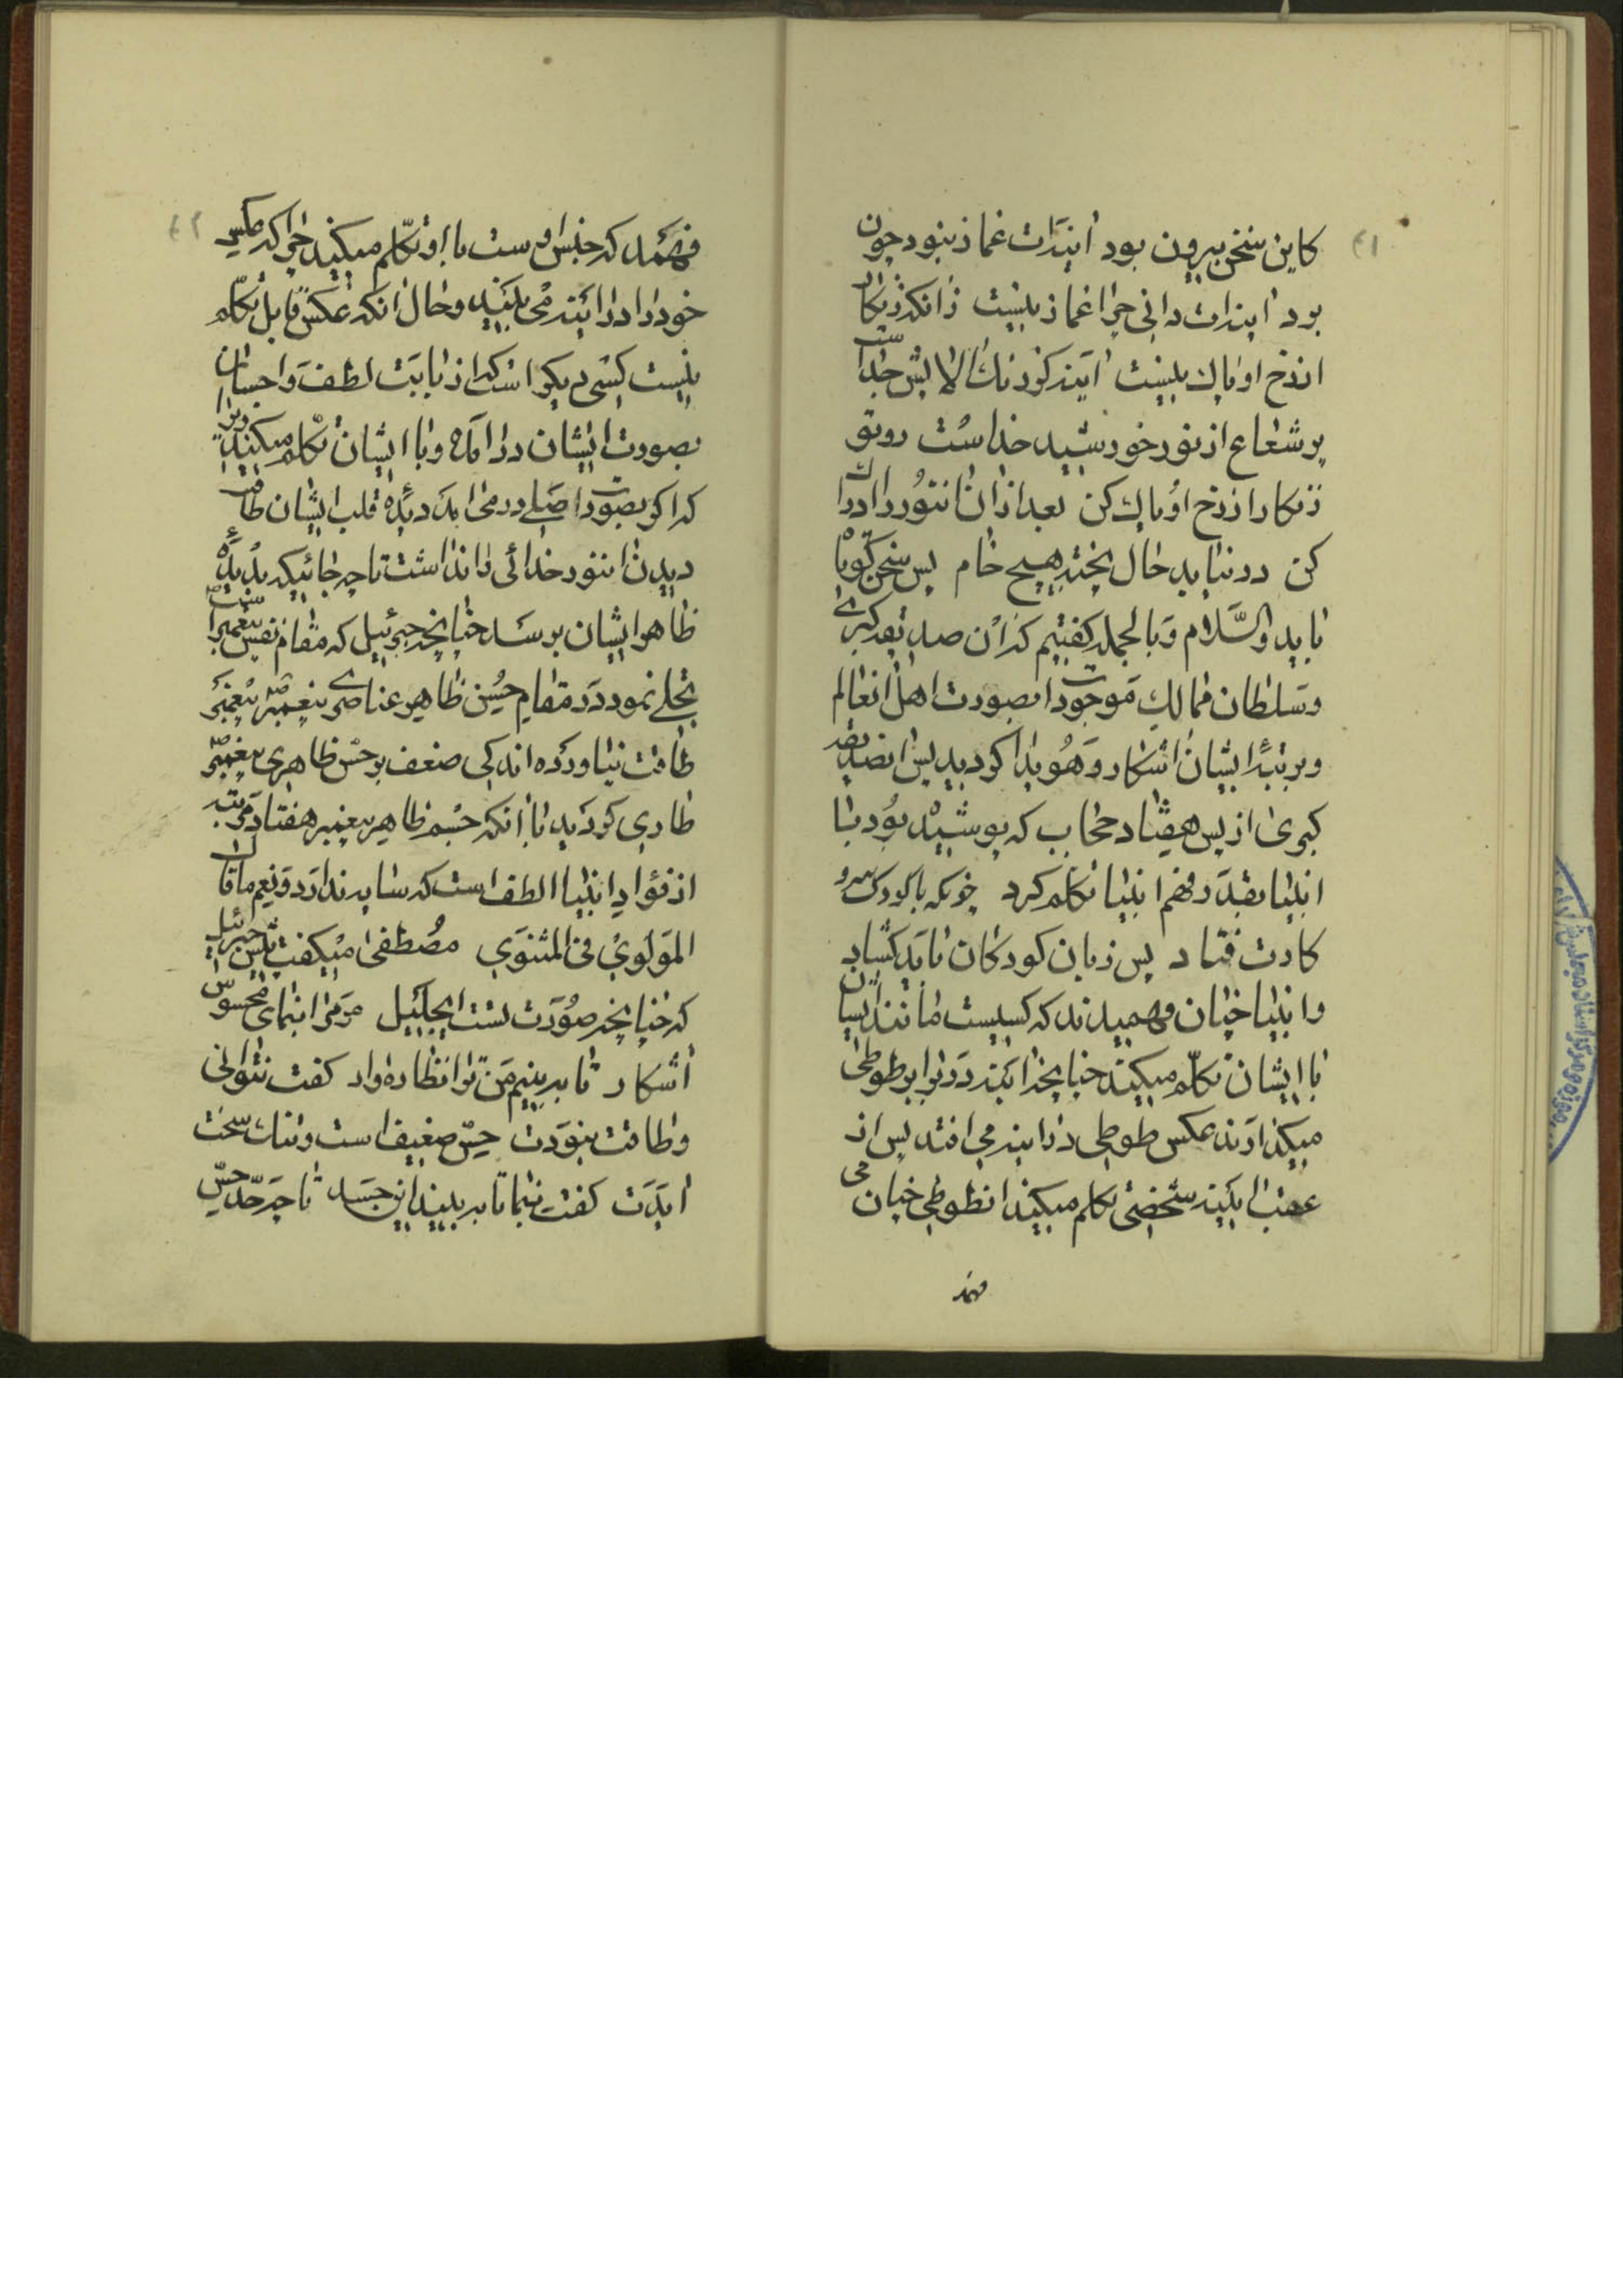 کاین سخن بیرون بود آینه‌ات غماز نبود چون
بود آینه‌ات دانی چرا غماز نیست زانکه زنگار
از رخ او پاک نیست آینه کز زنگ الایش جداست
پر شعاع از نور خورشید خداست رو تو
زنگار از رخ او پاک کن بعد از ان آن نور را ادراک
کن در نیابد حال پخته هیچ خام پس سخن کوتاه
باید والسلام و بالجمله گفتیم که آن صدیقه کبری
و سلطان ممالک موجودات بصورت اهل آن عالم
و برتبه ایشان آشکار و هویدا گردید پس آن صدیقه
کبری از پس هفتاد حجاب که پوشیده بود با
انبیا بقدر فهم انبیا تکلم کرد چونکه با کودک سر و
کارت فتاد پس زبان کودکان باید گشاد
و انبیا چنان فهمیدند که کسیست مانند ایشان
با ایشان تکلم میکند چنانچه آینه در برابر طوطی
میگذارند عکس طوطی در آینه می افتد پس از
عقب آینه شخصی تکلم میکند آن طوطی چنان می
فهمد
۴۱
فهمد که جنس اوست با او تکلم میکند چرا که عکس
خود را در آینه می بیند و حال آنکه عکس قابل تکلم
نیست کسی دیگر است که از بابت لطف و احسان
بصورت ایشان در آمده و با ایشان تکلم میکند زیرا
که اگر بصورت اصلی در می آمد دیده قلب ایشان طاقت
دیدن آن نور خدائی را نداشت تا چه جائیکه بدیده
ظاهر ایشان برسد چنانچه جبرئیل که مقام نفس پیغمبر است
تجلی نمود در مقام حسن ظاهر عناصری پیغمبر پیغمبر
طاقت نیاورده اندکی ضعف بر حس ظاهری پیغمبر
طاری گردید با آنکه جسم ظاهر پیغمبر هفتاد مرتبه
از فؤاد انبیا الطف است که سایه ندارد و نعم ما قال
المولوی فی المثنوی مصطفی میگفت پیش جبرئیل
که چنانچه صورت تست ای جلیل مر مرا بنمای محسوس
آشکار تا ببینم من ترا نظاره وار گفت نتوانی
و طاقت نبودت حس ضعیف است و تنک سخت
ایدت گفت بنما تا ببیند این جسد تا چه حد حس
۴۲